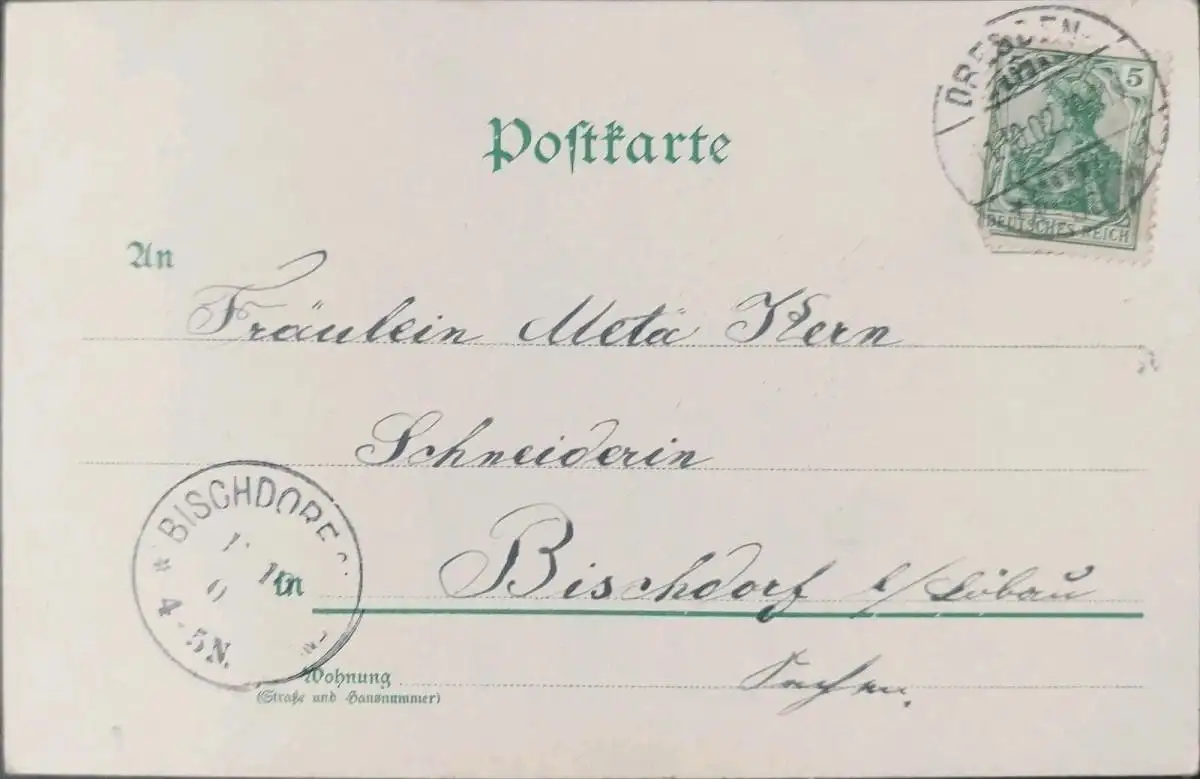 DRESDEN
5
02
DEUTSCHES REICH
Postkarte
An
Fräulein Meta Kern
Schneiderin
BISCHDORF
4-5N.
in
Bischdorf b/Löbau
Sachsen.
Wohnung
(Straße und Hausnummer)